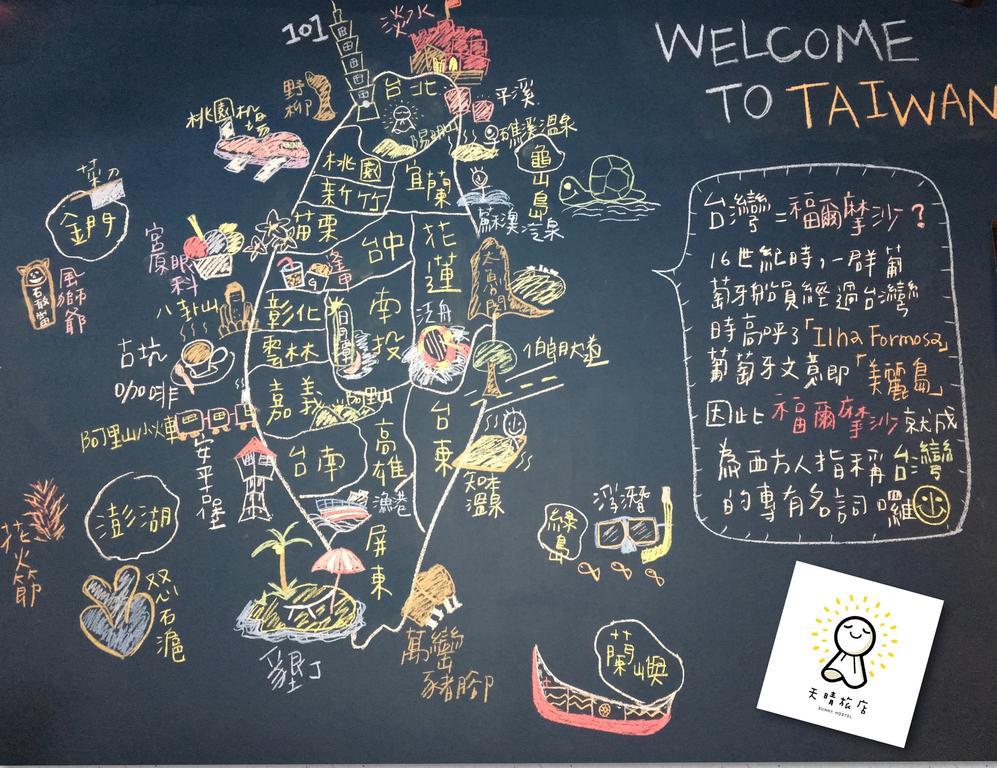 WELCOME
TO TAIWAN
101
淡水
野柳
台北
平溪
桃園機場
陽明山
礁溪溫泉
龜山島
桃園
新竹
宜蘭
菜刀
金門
苗栗
蘇澳冷泉
台中
花蓮
宮原眼科
逢甲
太魯閣
風獅爺
石敢當
八卦山
彰化
南投
泛舟
日月潭
古坑
咖啡
雲林
伯朗大道
嘉義
阿里山
阿里山小火車
台東
安平古堡
台南
高雄
漁港
知本
溫泉
澎湖
花火節
屏東
綠島
浮潛
怒石滬
墾丁
萬巒
豬腳
蘭嶼
台灣=福爾摩沙?
16世紀時,一群葡
萄牙船員經過台灣
時高呼了「Ilha Formosa」
葡萄牙文意即「美麗島」
因此福爾摩沙就成
為西方人指稱台灣
的專有名詞囉
天晴旅店
SUNNY HOSTEL